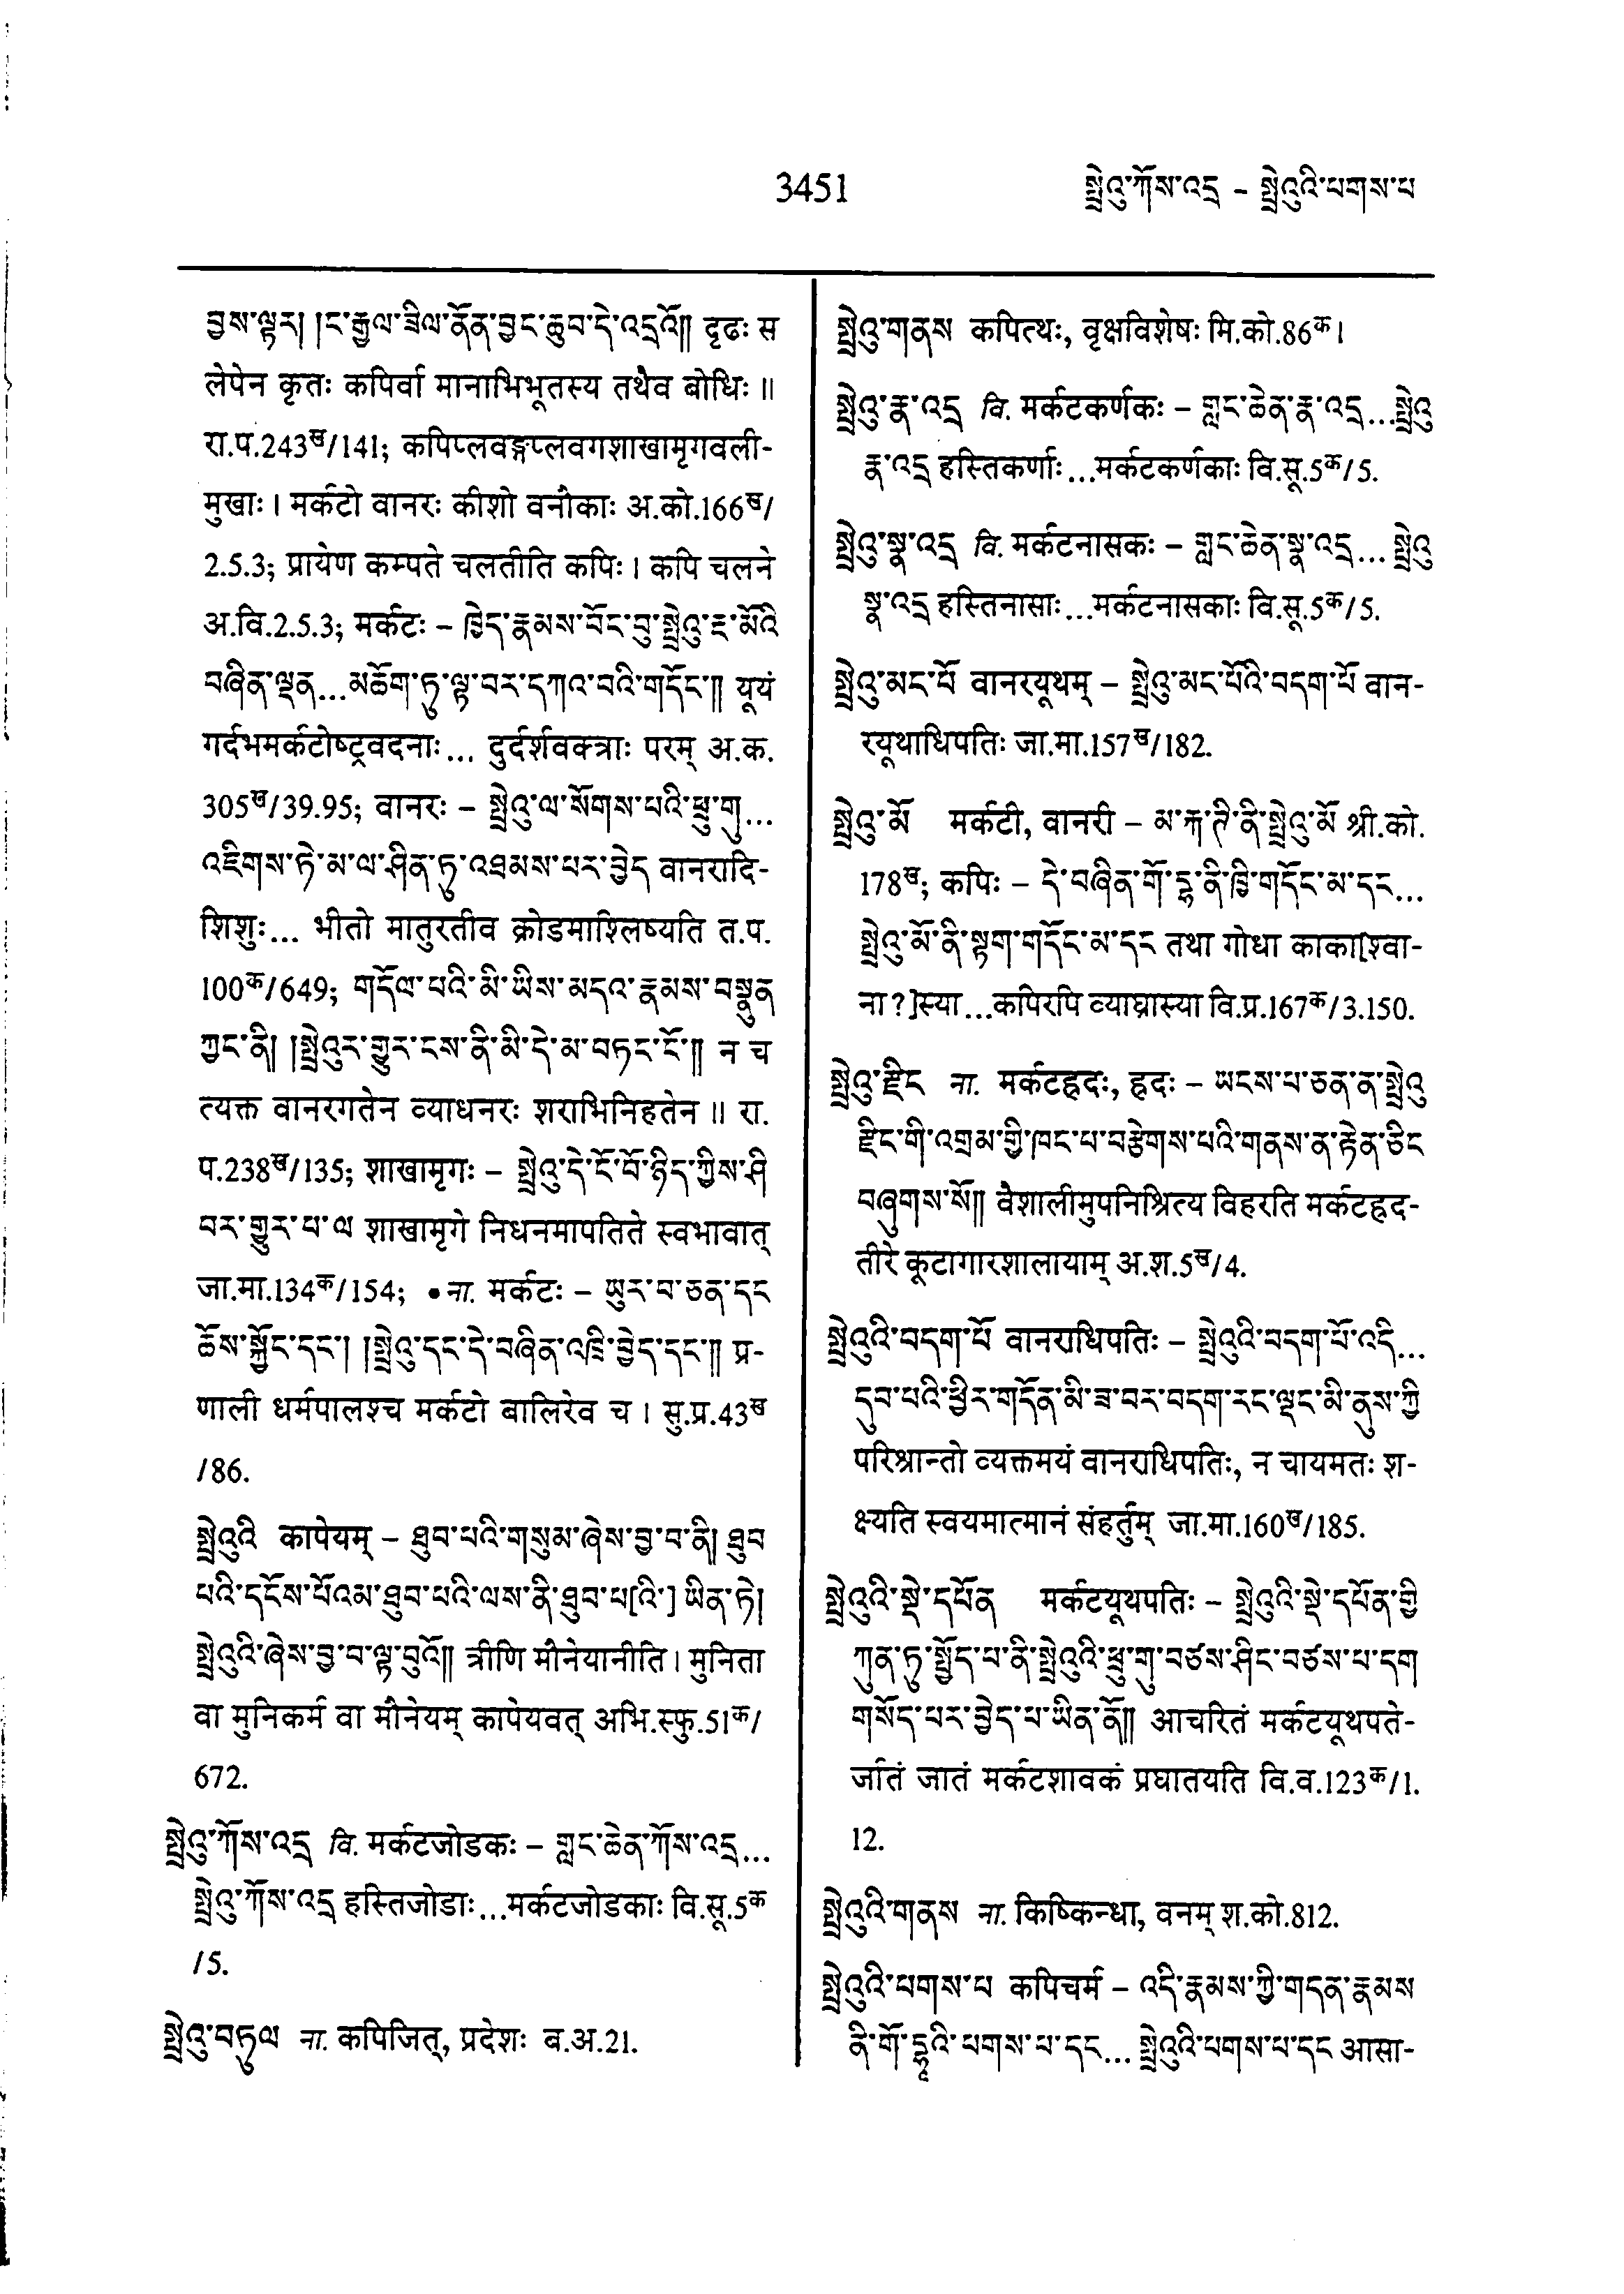 3451
སྤྲེའུ་ཀོས་འདྲ – སྤྲེའུའི་པགས་པ
བྱས་ལྟར། །ང་རྒྱལ་ཟིལ་ནོན་བྱང་ཆུབ་དེ་འདྲའོ༎ दृढः स
लेपेन कृतः कपिर्वा मानाभिभूतस्य तथैव बोधिः ॥
रा.प.243ख/141; कपिप्लवङ्गप्लवगशाखामृगवली-
मुखाः । मर्कटो वानरः कीशो वनौकाः अ.को.166ख/
2.5.3; प्रायेण कम्पते चलतीति कपिः । कपि चलने
अ.वि.2.5.3; मर्कटः – ཁྱེད་རྣམས་བོང་བུ་སྤྲེའུ་རྔ་མོའི
བཞིན་ལྡན...མཆོག་ཏུ་ལྟ་བར་དཀའ་བའི་གདོང་༎ यूयं
गर्दभमर्कटोष्ट्रवदनाः... दुर्दर्शवक्त्राः परम् अ.क.
305ख/39.95; वानरः – སྤྲེའུ་ལ་སོགས་པའི་ཕྲུ་གུ...
འཇིགས་ཏེ་མ་ལ་ཤིན་ཏུ་འཐམས་པར་བྱེད वानरादि-
शिशुः... भीतो मातुरतीव क्रोडमाश्लिष्यति त.प.
100क/649; གདོལ་པའི་མི་ཡིས་མདའ་རྣམས་བསྣུན
ཀྱང་ནི། །སྤྲེའུར་གྱུར་ངས་ནི་མི་དེ་མ་བཏང་ངོ་༎ न च
त्यक्त वानरगतेन व्याधनरः शराभिनिहतेन ॥ रा.
प.238ख/135; शाखामृगः – སྤྲེའུ་དེ་ངོ་བོ་ཉིད་ཀྱིས་ཤི
བར་གྱུར་པ་ལ शाखामृगे निधनमापतिते स्वभावात्
जा.मा.134क/154; • ना. मर्कटः – ཡུར་བ་ཅན་དང
ཆོས་སྐྱོང་དང་། །སྤྲེའུ་དང་དེ་བཞིན་འཁྲི་བྱེད་དང་༎ प्र-
णाली धर्मपालश्च मर्कटो बालिरेव च । सु.प्र.43ख
/86.
སྤྲེའུའི कापेयम् – ཐུབ་པའི་གསུམ་ཞེས་བྱ་བ་ནི། ཐུབ
པའི་དངོས་པོའམ་ཐུབ་པའི་ལས་ནི་ཐུབ་པ[འི་] ཡིན་ཏེ།
སྤྲེའུའི་ཞེས་བྱ་བ་ལྟ་བུའོ༎ त्रीणि मौनेयानीति । मुनिता
वा मुनिकर्म वा मौनेयम् कापेयवत् अभि.स्फु.51क/
672.
སྤྲེའུ་ཀོས་འདྲ वि. मर्कटजोडकः – གླང་ཆེན་ཀོས་འདྲ...
སྤྲེའུ་ཀོས་འདྲ हस्तिजोडाः...मर्कटजोडकाः वि.सू.5क
/5.
སྤྲེའུ་བཏུལ ना. कपिजित्, प्रदेशः ब.अ.21.
སྤྲེའུ་གནས कपित्थः, वृक्षविशेषः मि.को.86क।
སྤྲེའུ་རྣ་འདྲ वि. मर्कटकर्णकः – གླང་ཆེན་རྣ་འདྲ...སྤྲེའུ
རྣ་འདྲ हस्तिकर्णाः...मर्कटकर्णकाः वि.सू.5क/5.
སྤྲེའུ་སྣ་འདྲ वि. मर्कटनासकः – གླང་ཆེན་སྣ་འདྲ... སྤྲེའུ
སྣ་འདྲ हस्तिनासाः...मर्कटनासकाः वि.सू.5क/5.
སྤྲེའུ་མང་པོ वानरयूथम् – སྤྲེའུ་མང་པོའི་བདག་པོ वान-
रयूथाधिपतिः जा.मा.157ख/182.
སྤྲེའུ་མོ मर्कटी, वानरी – མ་རྐ་ཊི་ནི་སྤྲེའུ་མོ श्री.को.
178ख; कपिः – དེ་བཞིན་གོ་དྷ་ནི་ཁྱི་གདོང་མ་དང...
སྤྲེའུ་མོ་ནི་སྟག་གདོང་མ་དང तथा गोधा काका[श्वा-
ना ?]स्या...कपिरपि व्याघ्रास्या वि.प्र.167क/3.150.
སྤྲེའུ་རྫིང ना. मर्कटह्रदः, ह्रदः – ཡངས་པ་ཅན་ན་སྤྲེའུ
རྫིང་གི་འགྲམ་གྱི་ཁང་པ་བརྩེགས་པའི་གནས་ན་རྟེན་ཅིང
བཞུགས་སོ༎ वैशालीमुपनिश्रित्य विहरति मर्कटह्रद-
तीरे कूटागारशालायाम् अ.श.5ख/4.
སྤྲེའུའི་བདག་པོ वानराधिपतिः – སྤྲེའུའི་བདག་པོ་འདི...
དུབ་པའི་ཕྱིར་གདོན་མི་ཟ་བར་བདག་རང་ལྡང་མི་ནུས་ཀྱི
परिश्रान्तो व्यक्तमयं वानराधिपतिः, न चायमतः श-
क्ष्यति स्वयमात्मानं संहर्तुम् जा.मा.160ख/185.
སྤྲེའུའི་སྡེ་དཔོན मर्कटयूथपतिः – སྤྲེའུའི་སྡེ་དཔོན་གྱི
ཀུན་ཏུ་སྤྱོད་པ་ནི་སྤྲེའུའི་ཕྲུ་གུ་བཙས་ཤིང་བཙས་པ་དག
གསོད་པར་བྱེད་པ་ཡིན་ནོ༎ आचरितं मर्कटयूथपते-
र्जातं जातं मर्कटशावकं प्रघातयति वि.व.123क/1.
12.
སྤྲེའུའི་གནས ना. किष्किन्धा, वनम् श.को.812.
སྤྲེའུའི་པགས་པ कपिचर्म – འདི་རྣམས་ཀྱི་གདན་རྣམས
ནི་གོ་དྷཱའི་པགས་པ་དང... སྤྲེའུའི་པགས་པ་དང आसा-